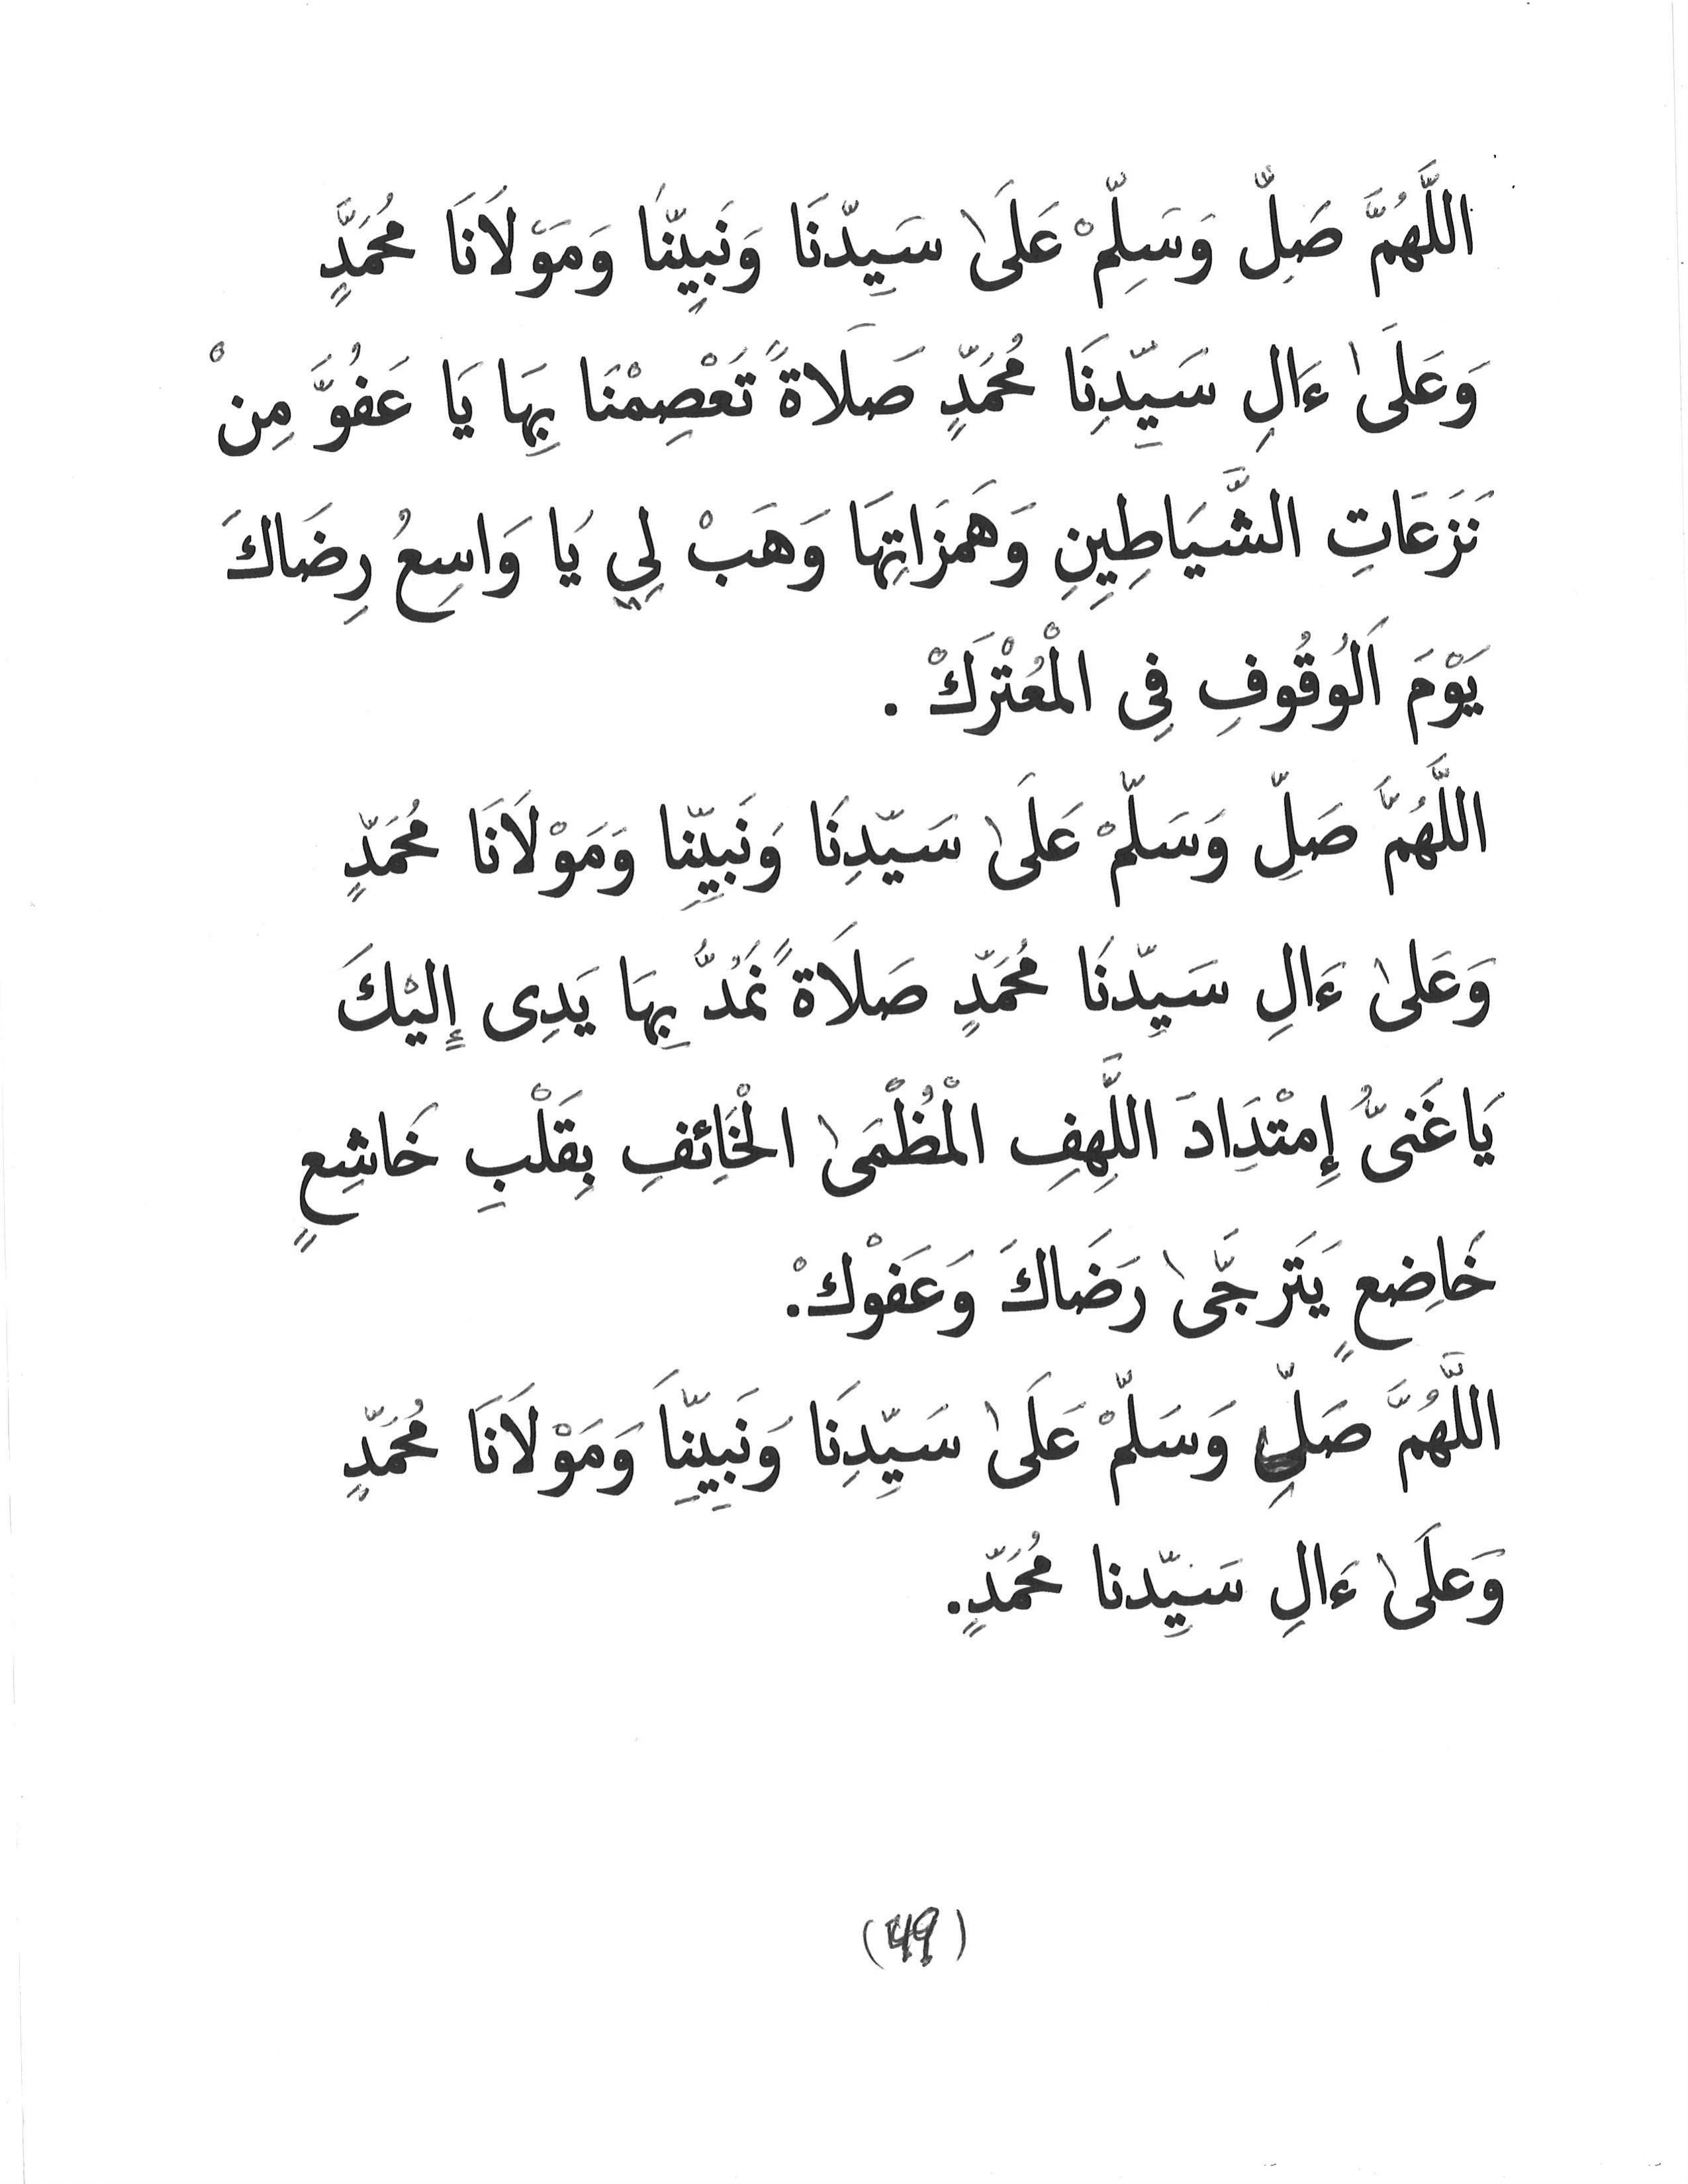 اللَّهُمَّ صَلِّ وَسَلِّمْ عَلَىٰ سَيِّدِنَا وَنَبِيِّنَا وَمَوْلَانَا مُحَمَّدٍ
وَعَلَىٰ ءَالِ سَيِّدِنَا مُحَمَّدٍ صَلَاةً تَعْصِمْنَا بِهَا يَا عَفُوَّ مِنْ
نَزَعَاتِ الشَّيَاطِينِ وَهَمَزَاتِهَا وَهَبْ لِي يَا وَاسِعُ رِضَاكَ
يَوْمَ اَلوُقُوفِ فِى الْمُعْتَرَكْ .
اللَّهُمَّ صَلِّ وَسَلِّمْ عَلَىٰ سَيِّدِنَا وَنَبِيِّنِا وَمَوْلَانَا مُحَمَّدٍ
وَعَلىٰ ءَالِ سَيِّدِنَا مُحَمَّدٍ صَلَاةً نَمُدُّ بِهَا يَدِى إِلَيْكَ
يَاغَنىُّ إِمْتِدَادَ اللَّهِفِ الْمُظْمَىٰ الْخَائِفِ بِقَلْبِ خَاشِعٍ
خَاضِعٍ يَتَرَجَّىٰ رَضَاكَ وَعَفْوَكْ.
اللَّهُمَّ صَلِّ وَسَلِّمْ عَلَىٰ سَيِّدِنَا وَنَبِيِّنَا وَمَوْلَانَا مُحَمَّدٍ
وَعَلَىٰ ءَالِ سَيِّدِنا مُحَمَّدٍ.
(49)